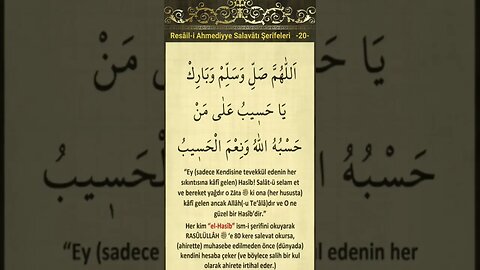 Resâil-i Ahmediyye Salavâtı Şerifeleri -20-
اَللّٰهُمَّ صَلِّ وَسَلِّمْ وَبَارِكْ
يَا حَسِيبُ عَلٰى مَنْ
حَسْبُهُ اللّٰهُ وَنِعْمَ الْحَسِيبُ
“Ey (sadece Kendisine tevekkül edenin her
sıkıntısına kâfi gelen) Hasîb! Salât-ü selam et
ve bereket yağdır o Zâta ﷺ ki ona (her hususta)
kâfi gelen ancak Allâh(-u Te‘âlâ)dır ve O ne
güzel bir Hasîb’dir.”
Her kim “el-Hasîb” ism-i şerifini okuyarak
RASÛLÜLLÂH ﷺ ’e 80 kere salevat okursa,
(ahirette) muhasebe edilmeden önce (dünyada)
kendini hesaba çeker (ve böylece salih bir kul
olarak ahirete irtihal eder.)